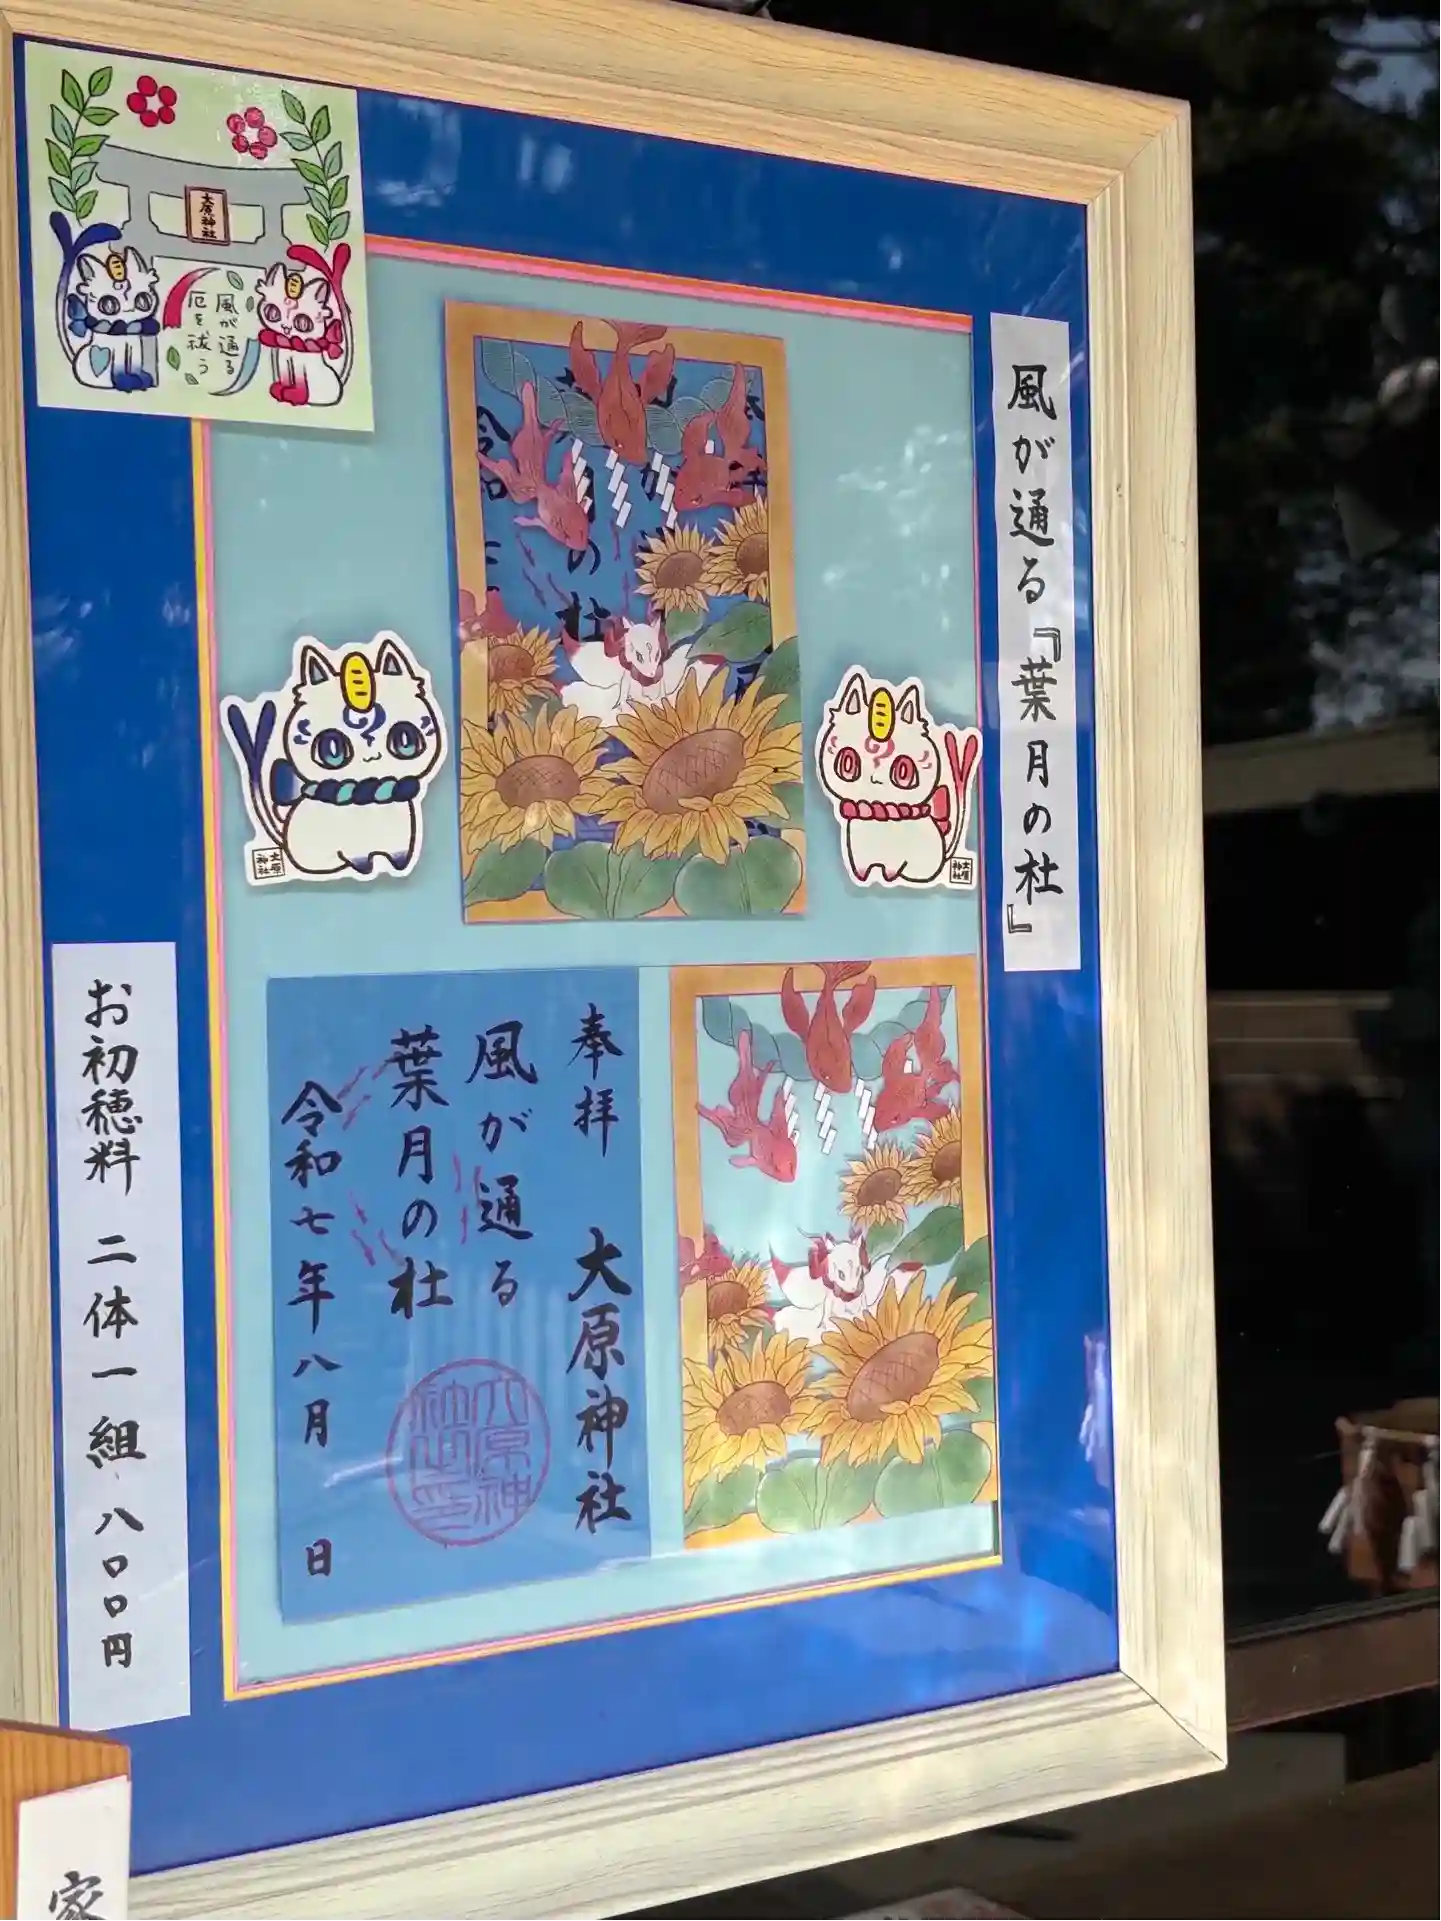 大原神社
風が通る
厄を祓う
風が通る『葉月の杜』
の
杜
大原
神社
大原
神社
奉拝 大原神社
風が通る
葉月の杜
令和七年八月 日
お初穂料 二体一組 八〇〇円
家